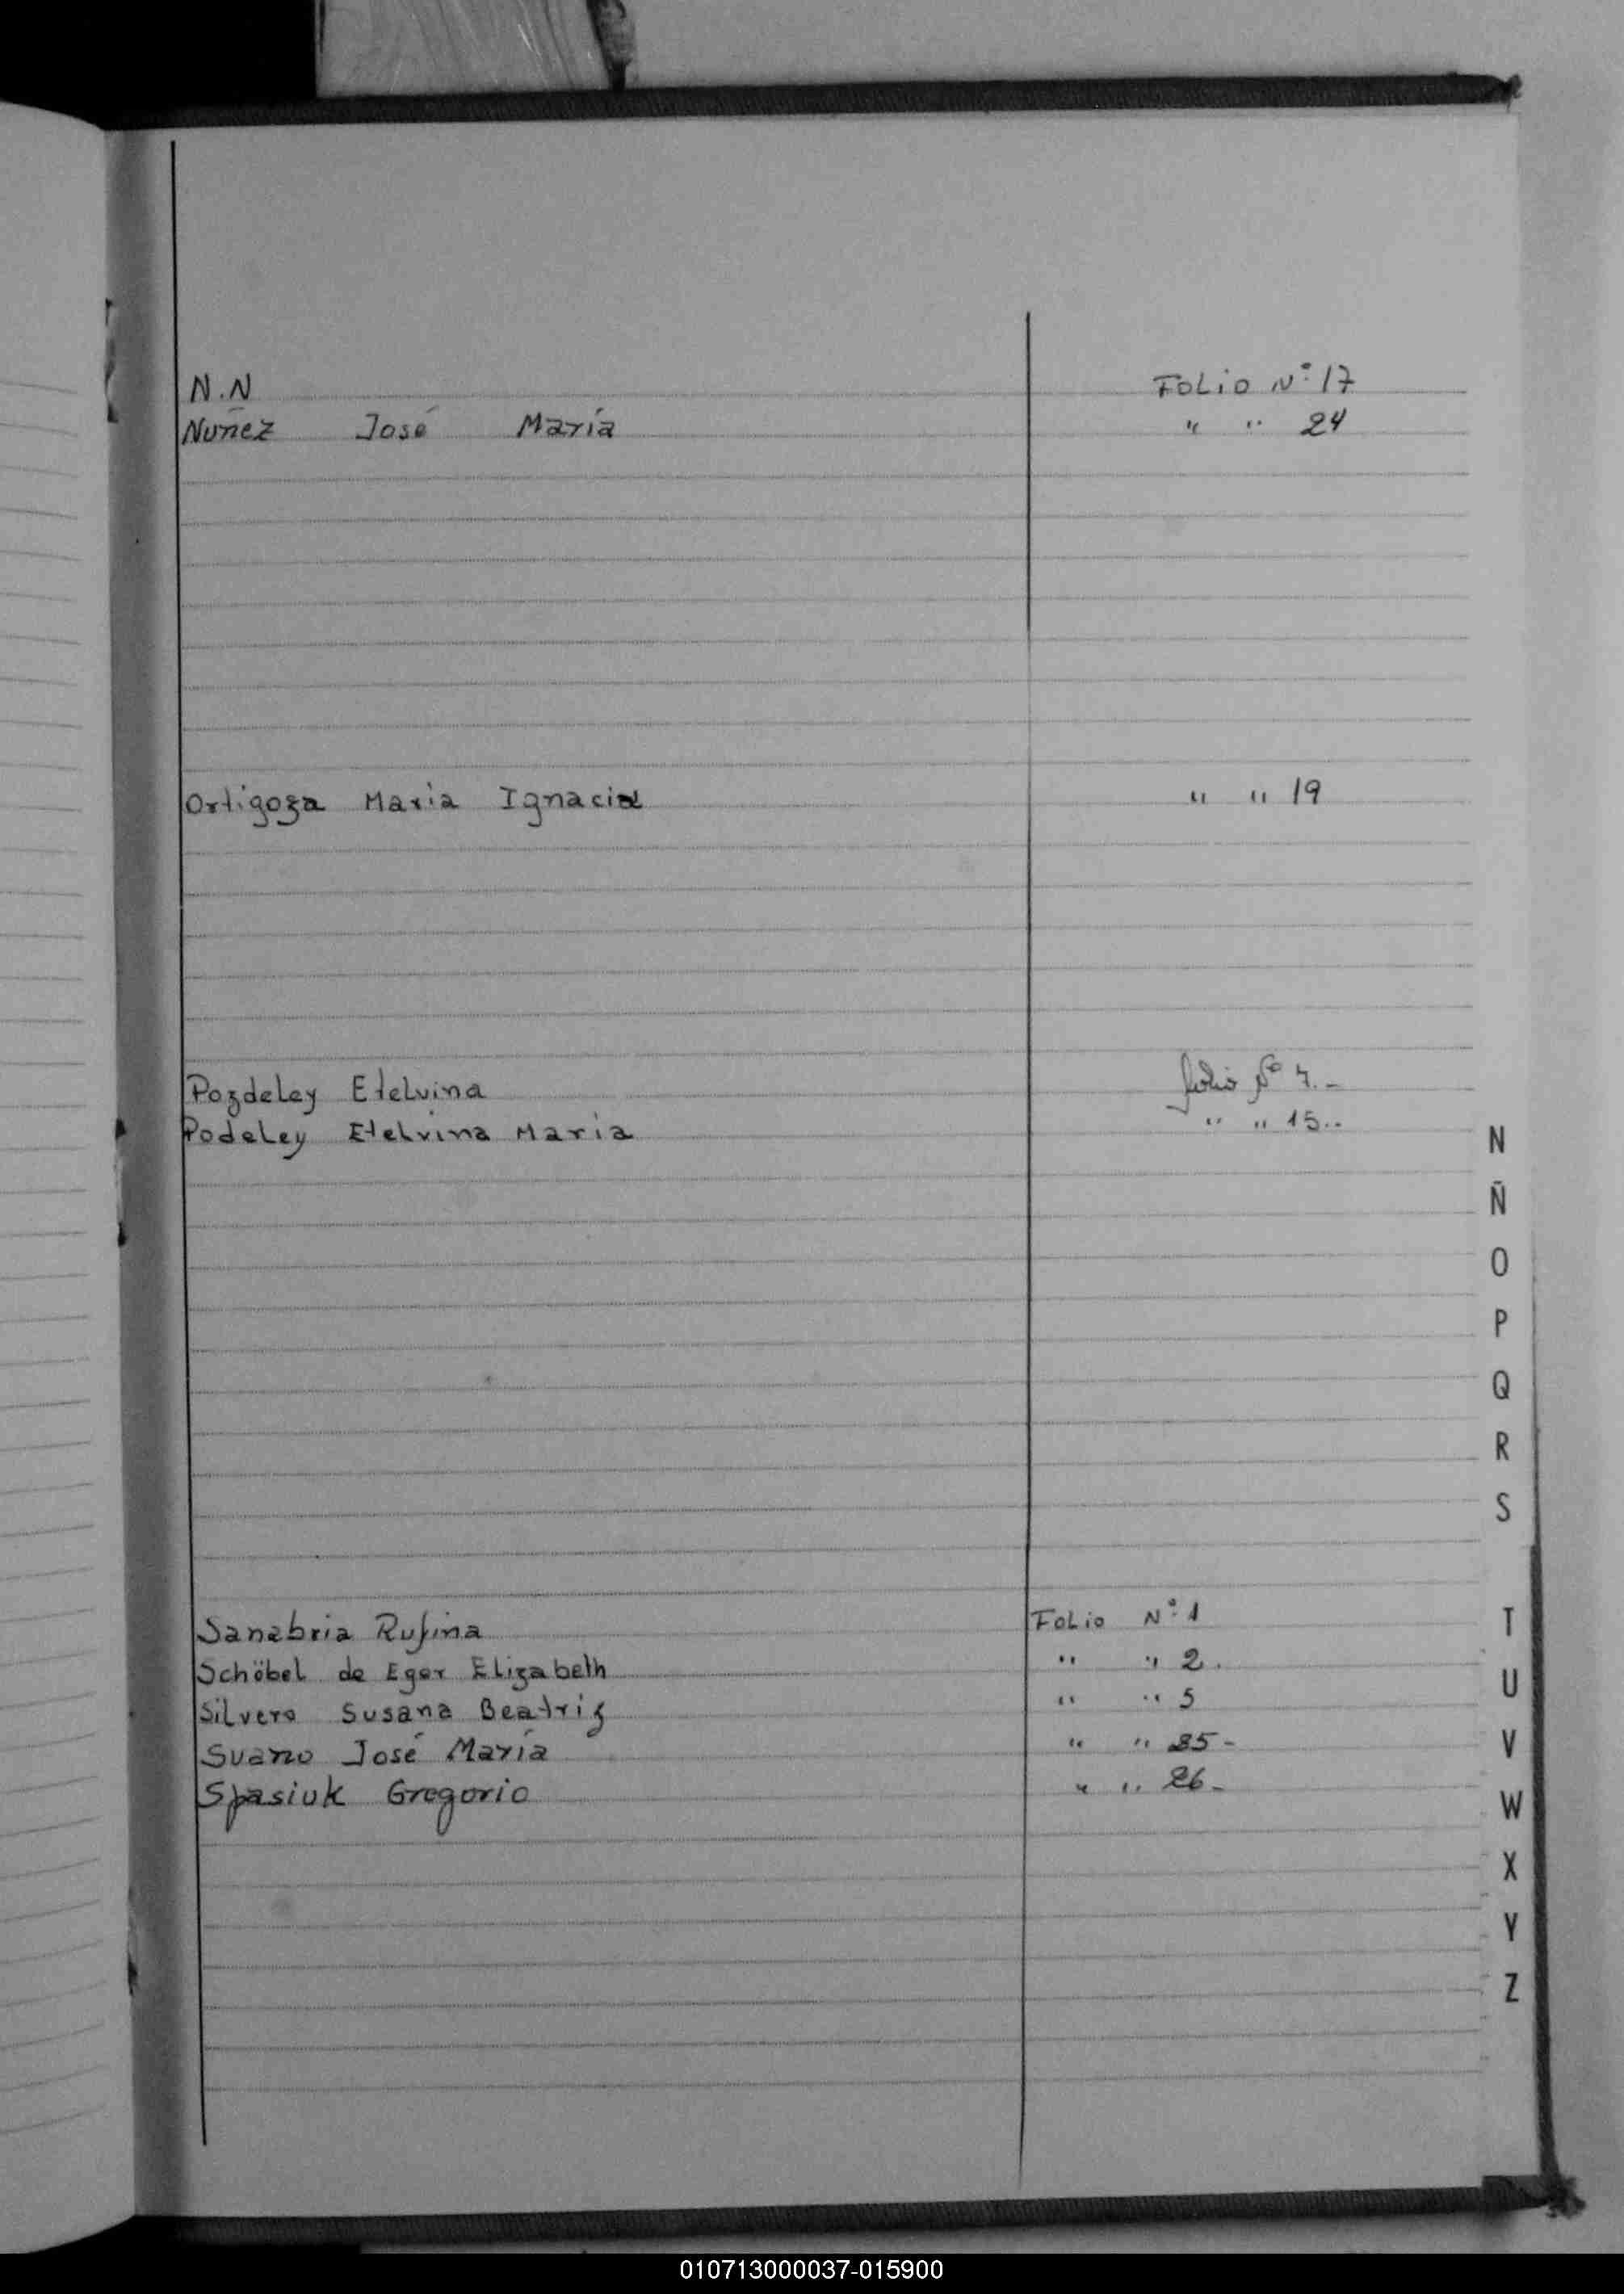 N.N Folio Nº 17
Nuñez José María " " 24
Ortigoza Maria Ignacia " " 19
Pozdeley Etelvina folio Nº 7.-
Podeley Etelvina Maria " " 15..
Sanabria Rufina Folio Nº 1
Schöbel de Eger Elizabeth " " 2.
Silvero Susana Beatriz " " 5
Suano José María " " 25-
Spasiuk Gregorio " " 26-
N
Ñ
O
P
Q
R
S
T
U
V
W
X
Y
Z
010713000037-015900